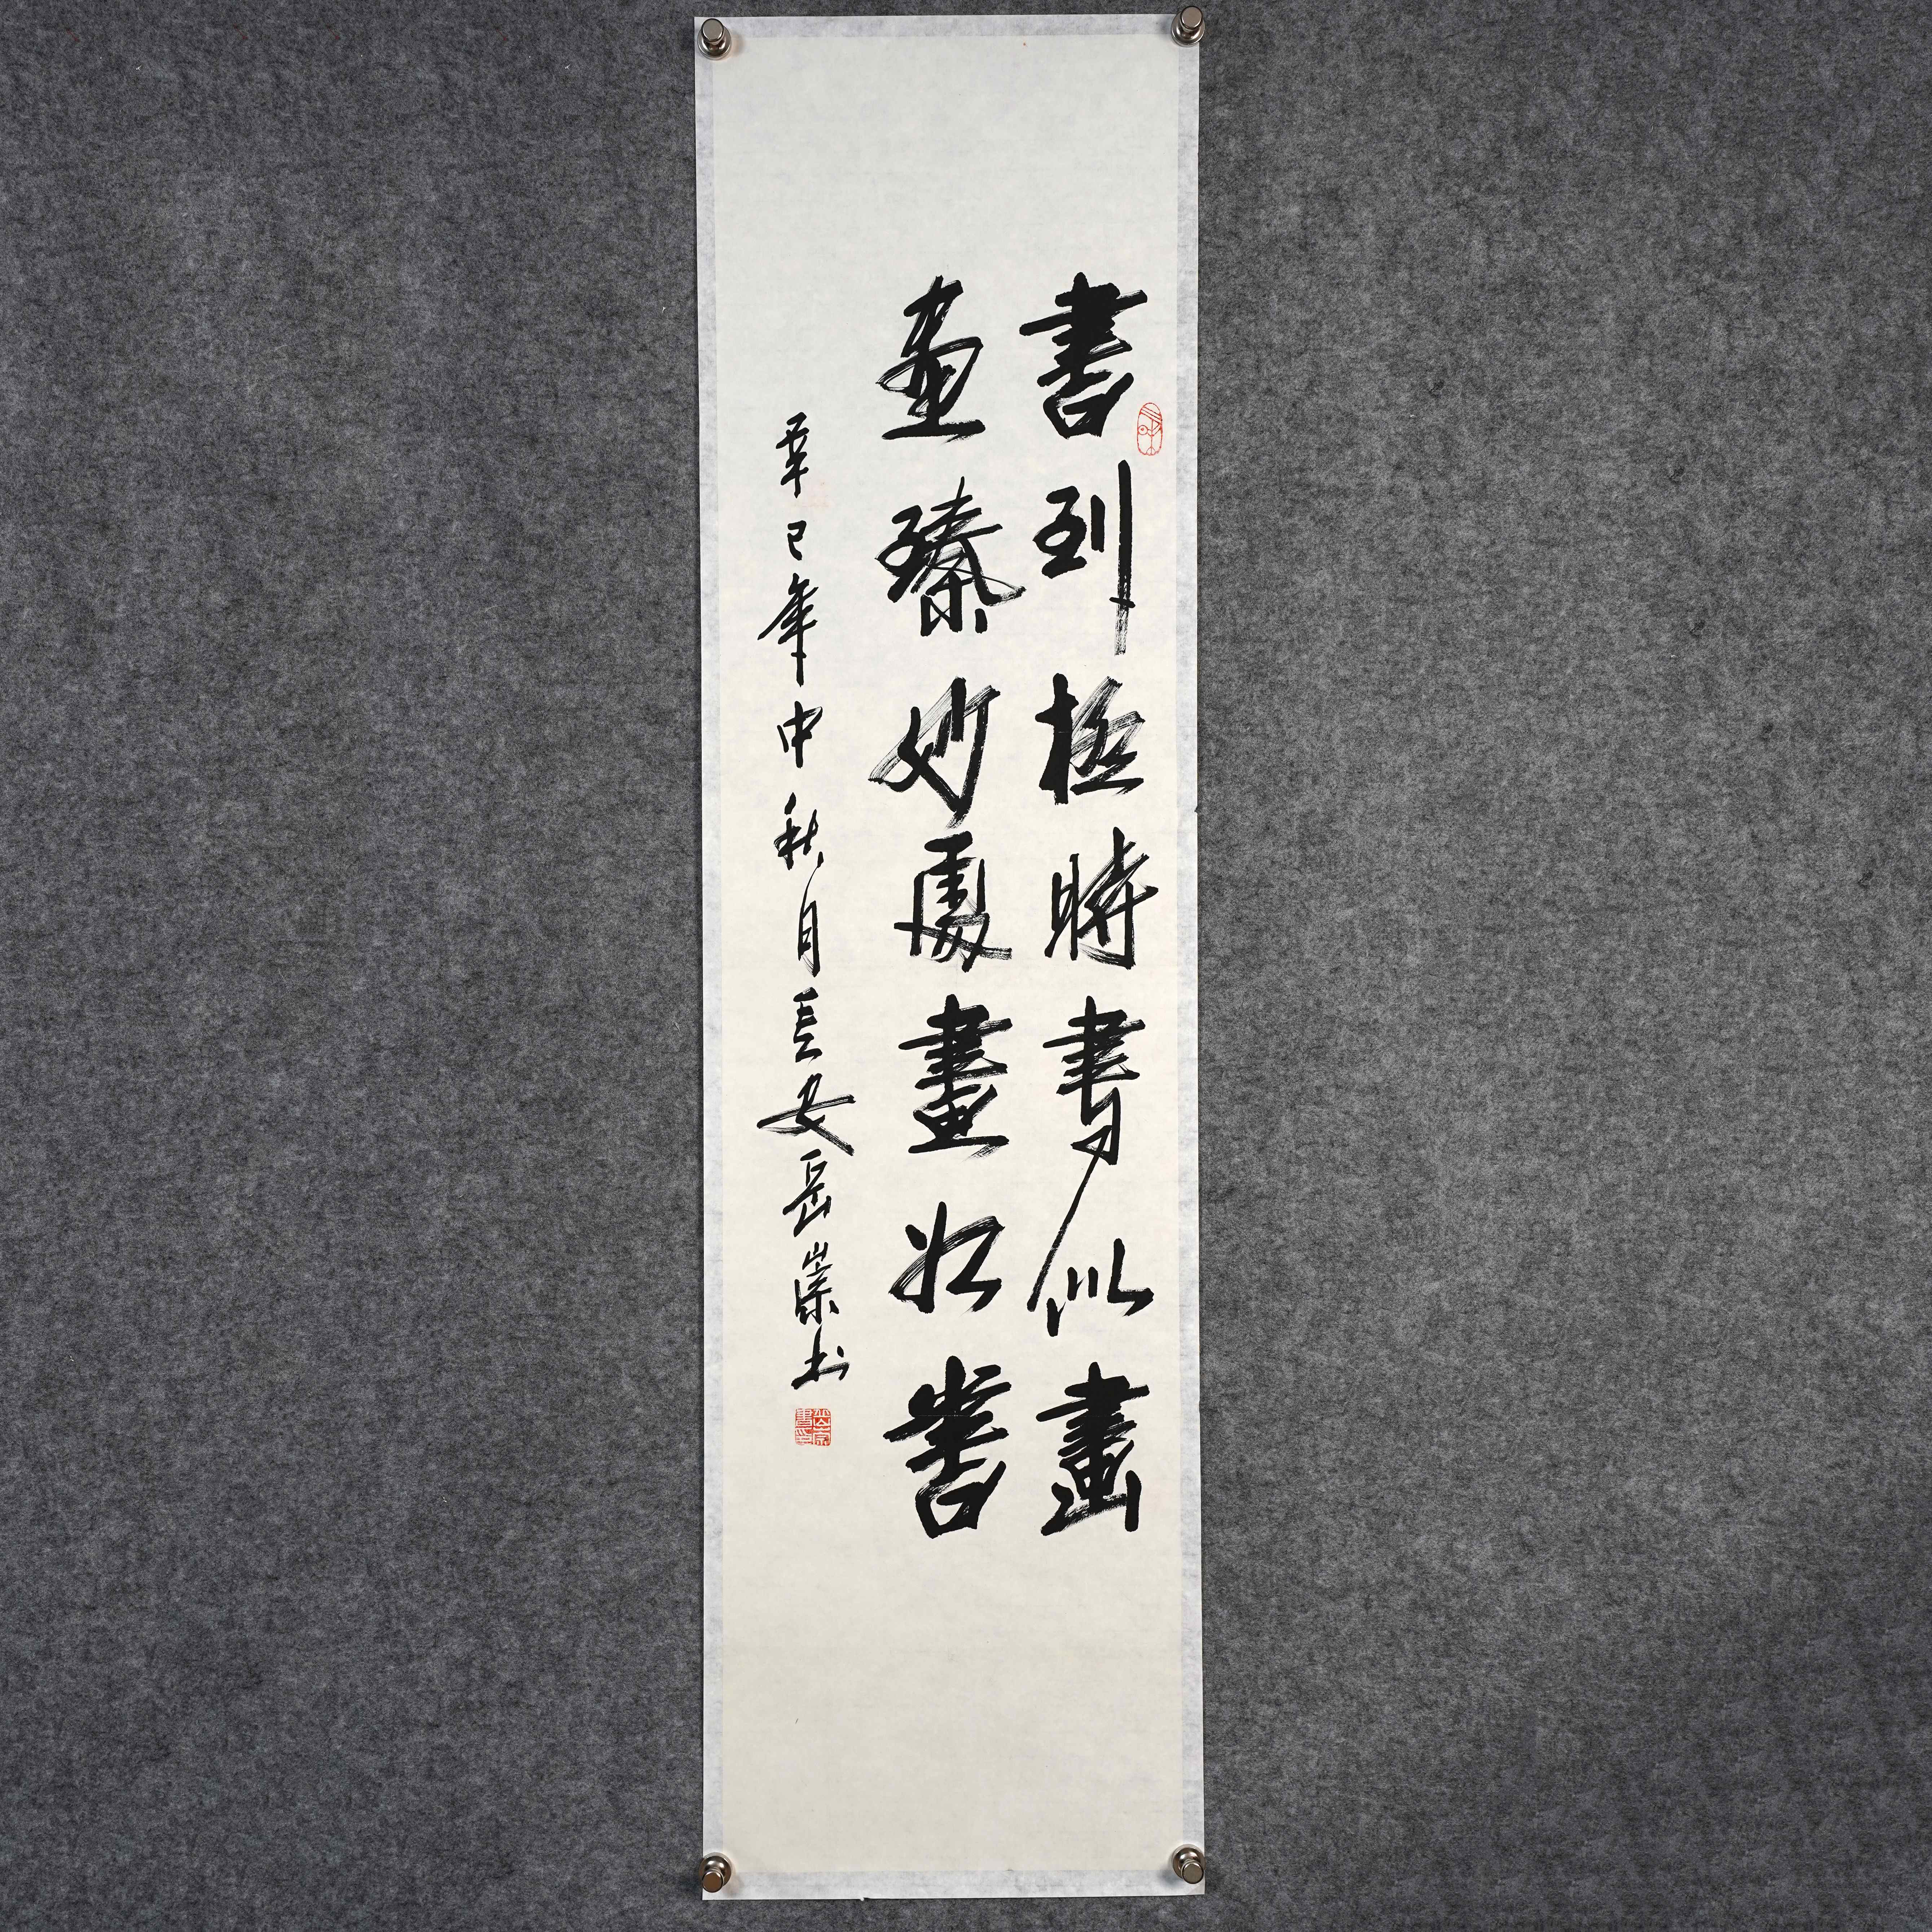 書到極時書似畫
畫臻妙處畫如書
辛巳年中秋月長安岳崇书